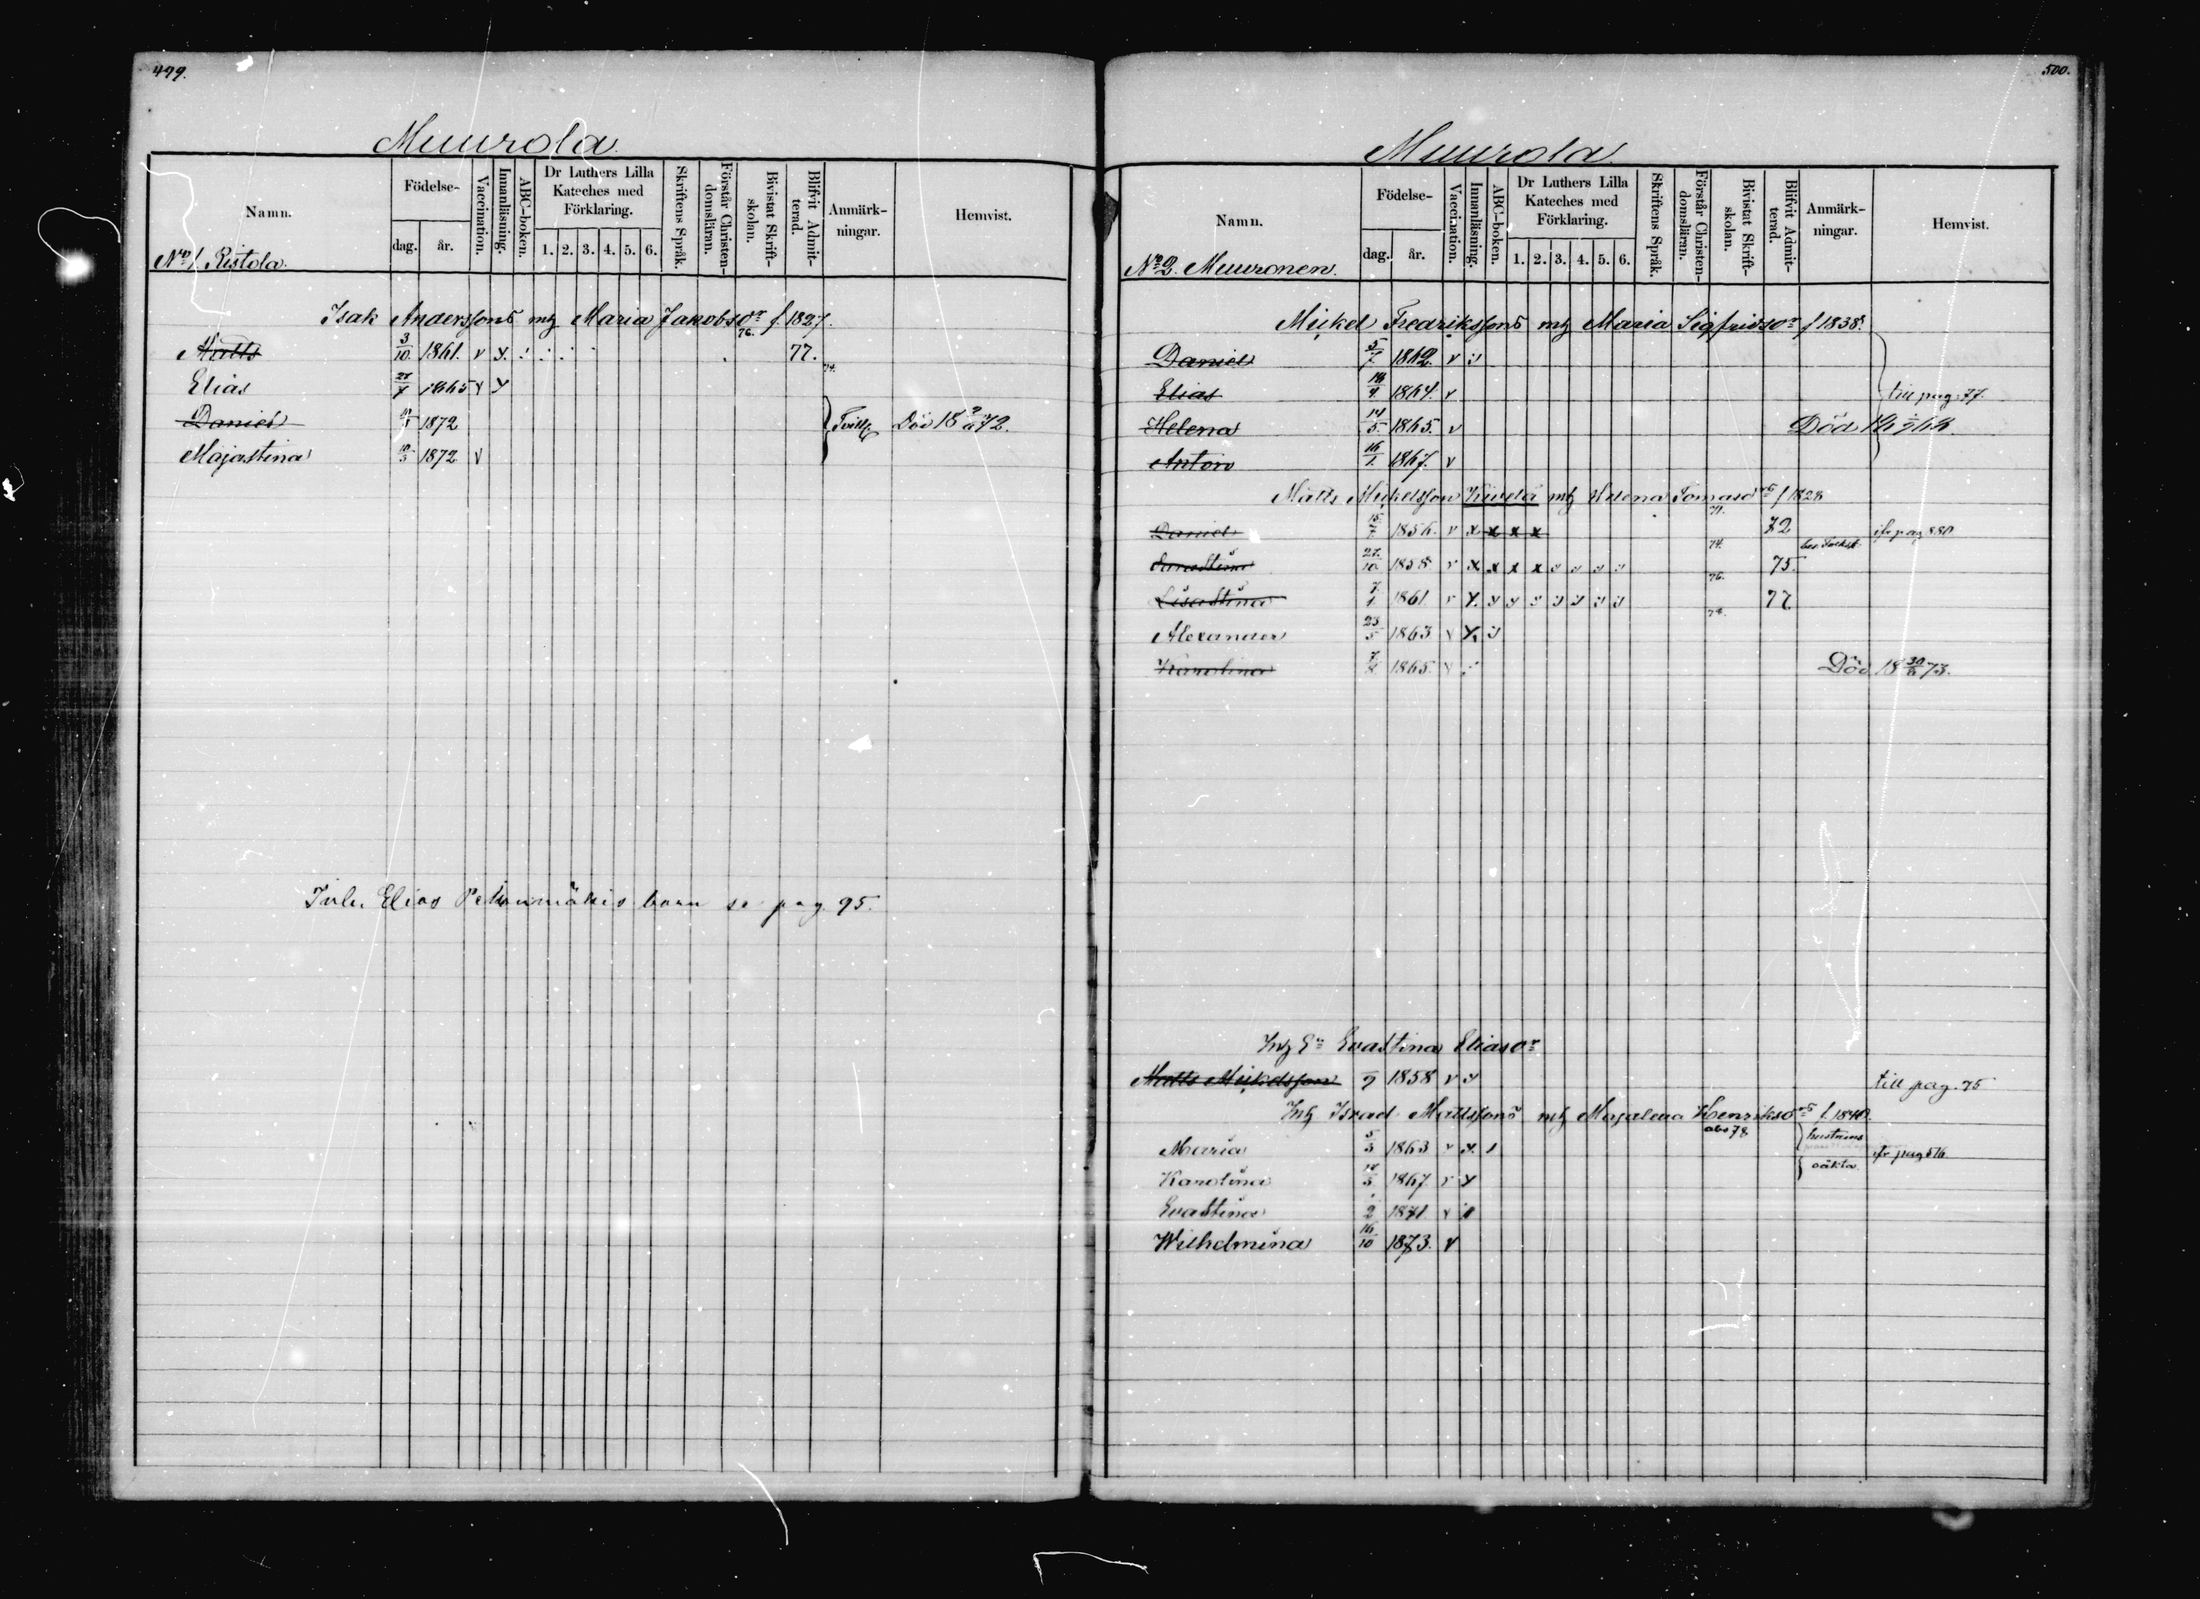 499.
Muurola
Namn.
Födelse-
dag.
år.
Vaccination.
Innanläsning.
ABC-boken.
Dr Luthers Lilla
Kateches med
Förklaring.
1. 2. 3. 4. 5. 6.
Skriftens Språk.
Förstår Christen-
domsläran.
Bivistat Skrift-
skolan.
Blifvit Admit-
terad.
Anmärk-
ningar.
Hemvist.
No 1. Ristola.
Isak Anderssons mh Maria Jakobsdr f. 1827.
76.
Matts 3/10 1861. v y. 77.
Elias 1865 v y
Daniel 1872 Tvill. Död 18 72.
Majastina 10/5 1872 v
Elias barn se pag. 95.
500.
Muurola
Namn.
Födelse-
dag.
år.
Vaccination.
Innanläsning.
ABC-boken.
Dr Luthers Lilla
Kateches med
Förklaring.
1. 2. 3. 4. 5. 6.
Skriftens Språk.
Förstår Christen-
domsläran.
Bivistat Skrift-
skolan.
Blifvit Admit-
terad.
Anmärk-
ningar.
Hemvist.
No 2. Muuronen.
Mickel Fredrikssons mh Maria Sigfridsdr f 1838.
Daniel 5/7 1862. v
Elias 1864. v till pag. 77.
Helena 14/5 1865. v Död
Anton 16/1 1867. v
Matts Mickelsson Kivelä mh Helena Tomasdr f 1828
Daniel 15/7 1856. v x x x x 72
74.
27/10 1858. v x x x x 75.
76.
Lisa Stina 7/1 1861. v y. y y 77
78.
Alexander 23/5 1863 v y.
Karolina 1865. v Död 18 30/ 73.
Inh En Evastina Eliasdr
Matts Mickelsson /9 1858 v y till pag. 75
Inh Israel Mattssons mh Majalena Henriksdr f. 1840.
abs 78 hustruns
Maria 5/3 1863 v y.
oäkta.
Karolina 1867. v y
Evastina /2 1871. v
Wilhelmina 16/10 1873. v